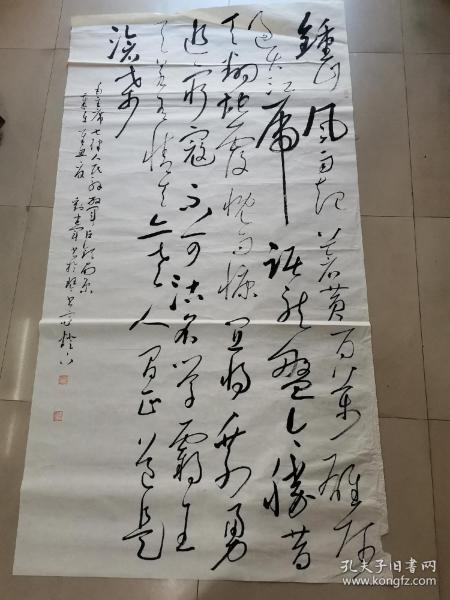 鍾山風雨起蒼黃百萬雄師
過大江虎踞龍盤今勝昔
天翻地覆慨而慷宜將剩勇
追窮寇不可沽名學霸王
天若有情天亦老人間正道是
滄桑
毛主席七律人民解放軍占領南京
孔夫子旧书网
www.kongfz.com